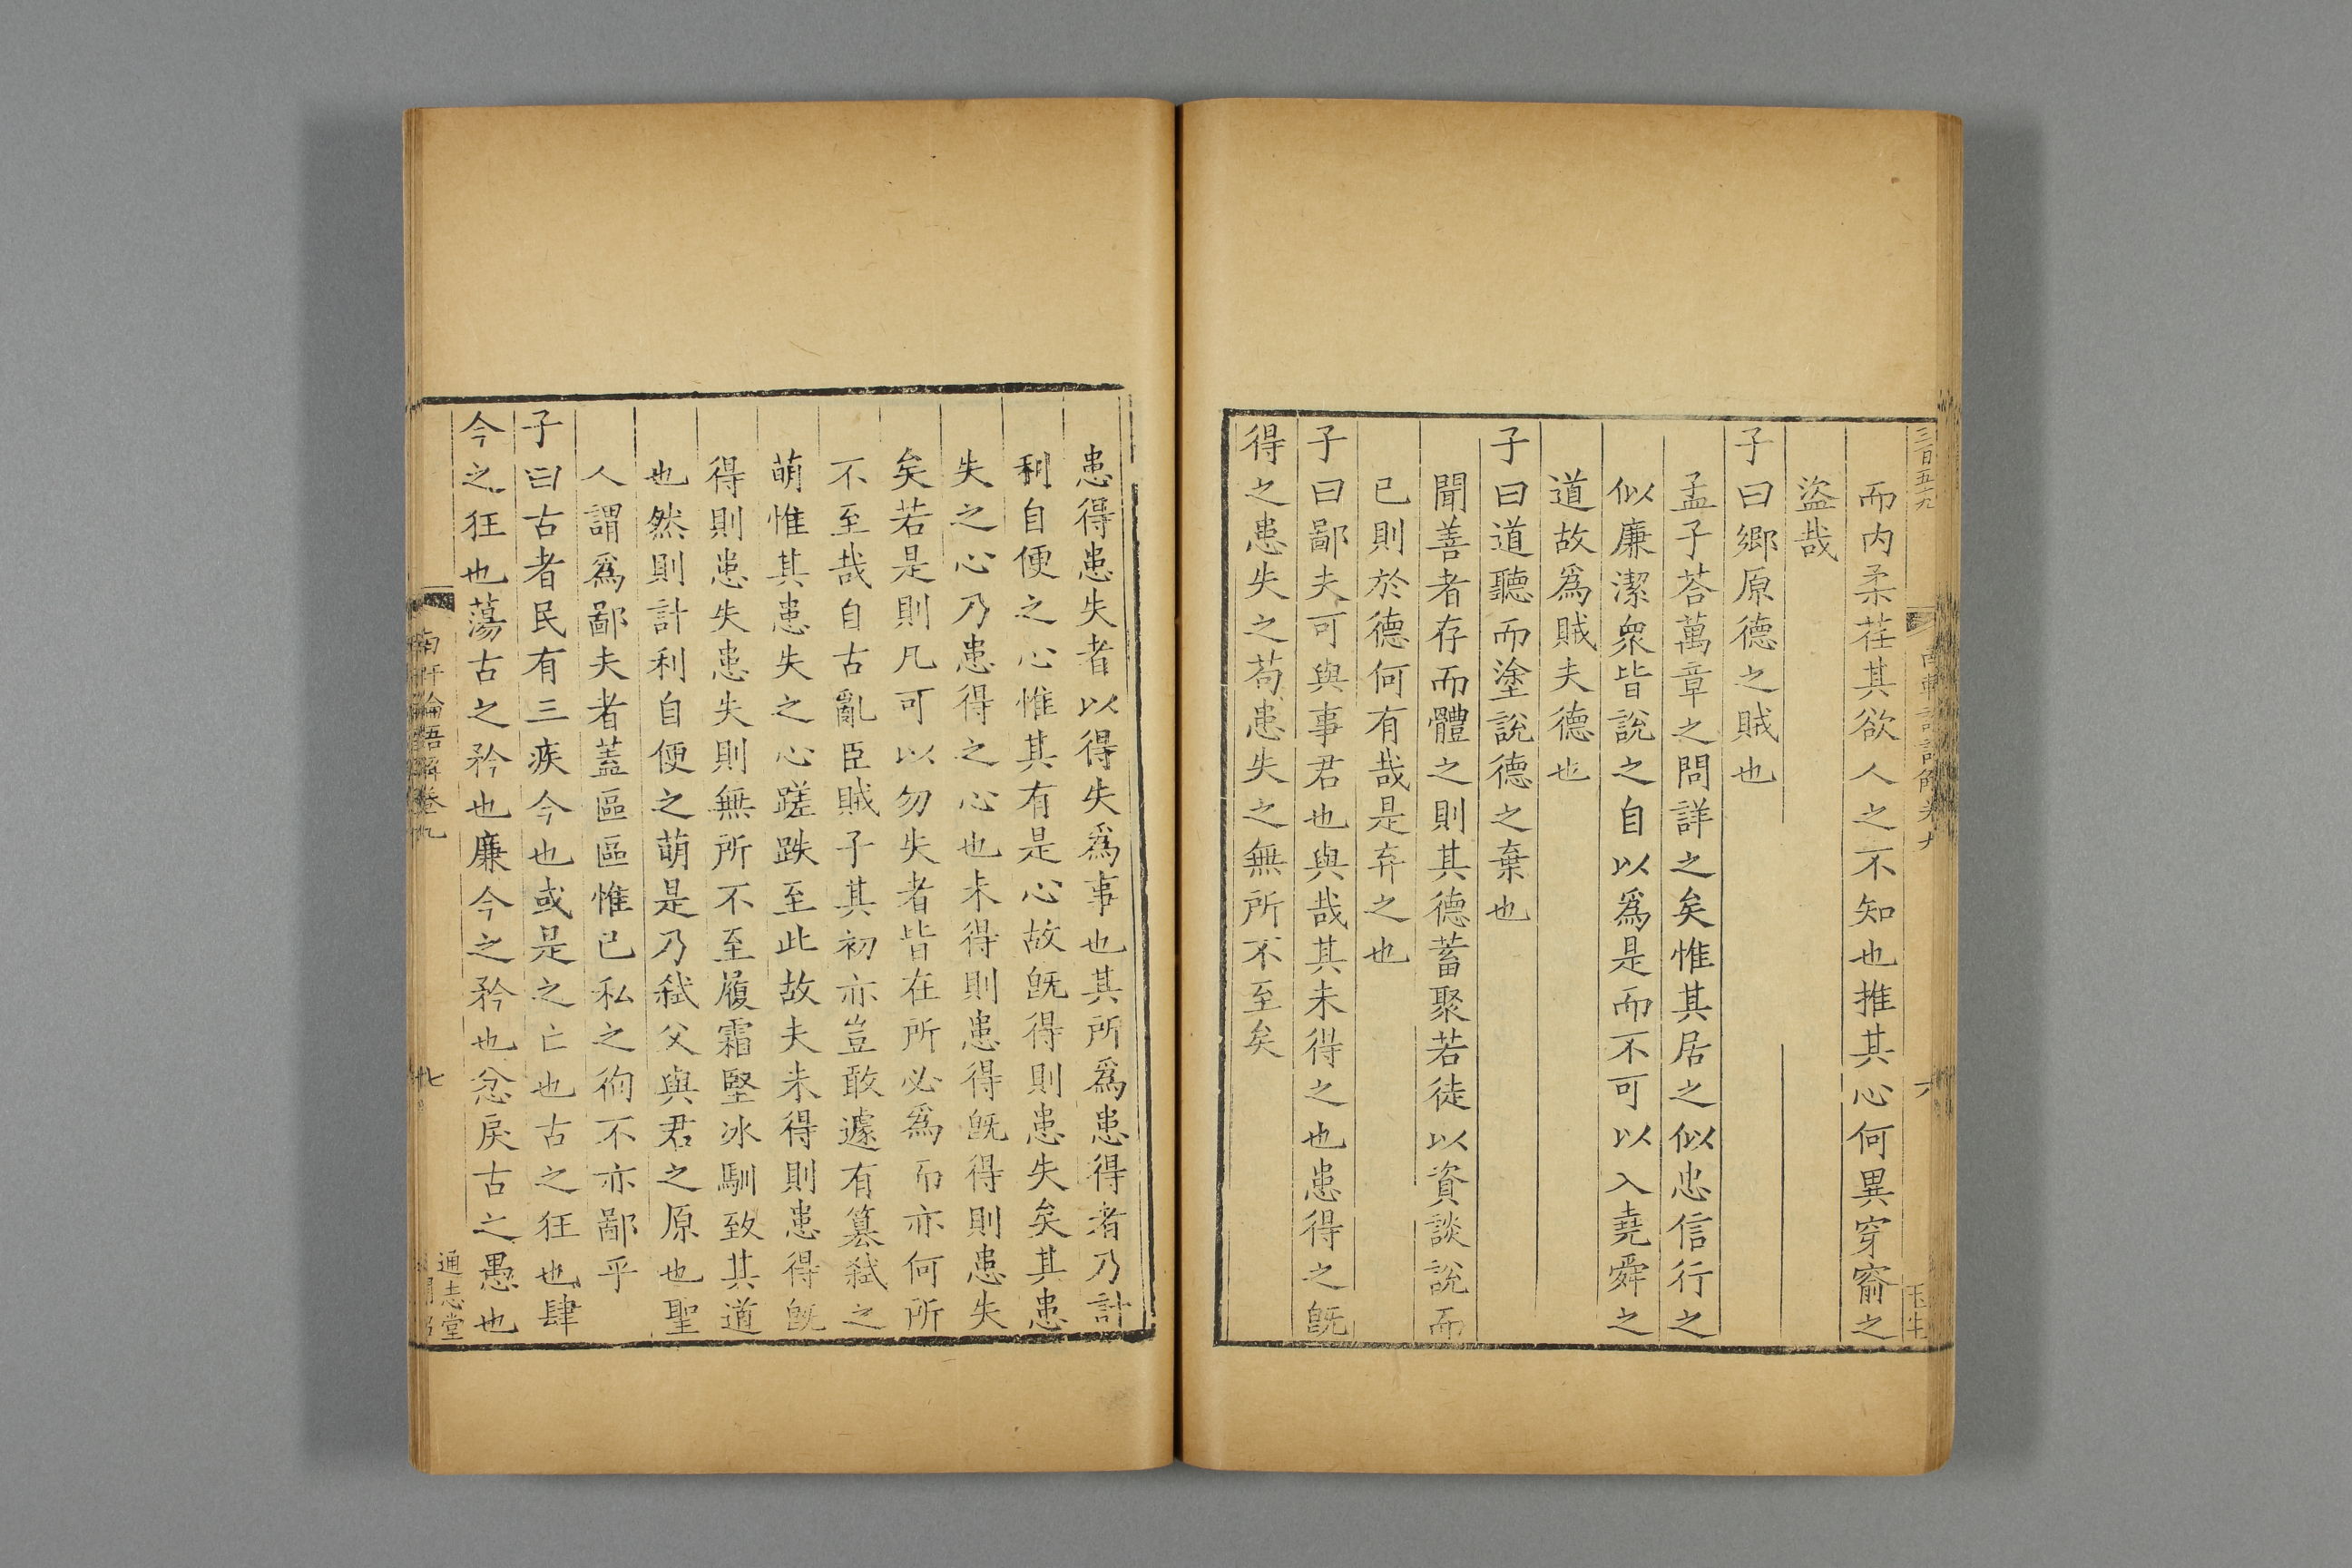 三百五九
南軒論語解卷九
六
而内柔荏其欲人之不知也推其心何異穿窬之
盜哉
子曰鄉原德之賊也
孟子荅萬章之問詳之矣惟其居之似忠信行之
似廉潔衆皆說之自以爲是而不可以入堯舜之
道故爲賊夫德也
子曰道聽而塗說德之棄也
聞善者存而體之則其德蓄聚若徒以資談說而
已則於德何有哉是弃之也
子曰鄙夫可與事君也與哉其未得之也患得之旣
得之患失之苟患失之無所不至矣
患得患失者以得失爲事也其所爲患得者乃計
利自便之心惟其有是心故旣得則患失矣其患
失之心乃患得之心也未得則患得旣得則患失
矣若是則凡可以勿失者皆在所必爲而亦何所
不至哉自古亂臣賊子其初亦豈敢遽有篡弒之
萌惟其患失之心蹉跌至此故夫未得則患得旣
得則患失患失則無所不至履霜堅冰馴致其道
也然則計利自便之萌是乃弒父與君之原也聖
人謂爲鄙夫者蓋區區惟已私之徇不亦鄙乎
子曰古者民有三疾今也或是之亡也古之狂也肆
今之狂也蕩古之矜也廉今之矜也忿戾古之愚也
南軒論語解卷九
七
通志堂